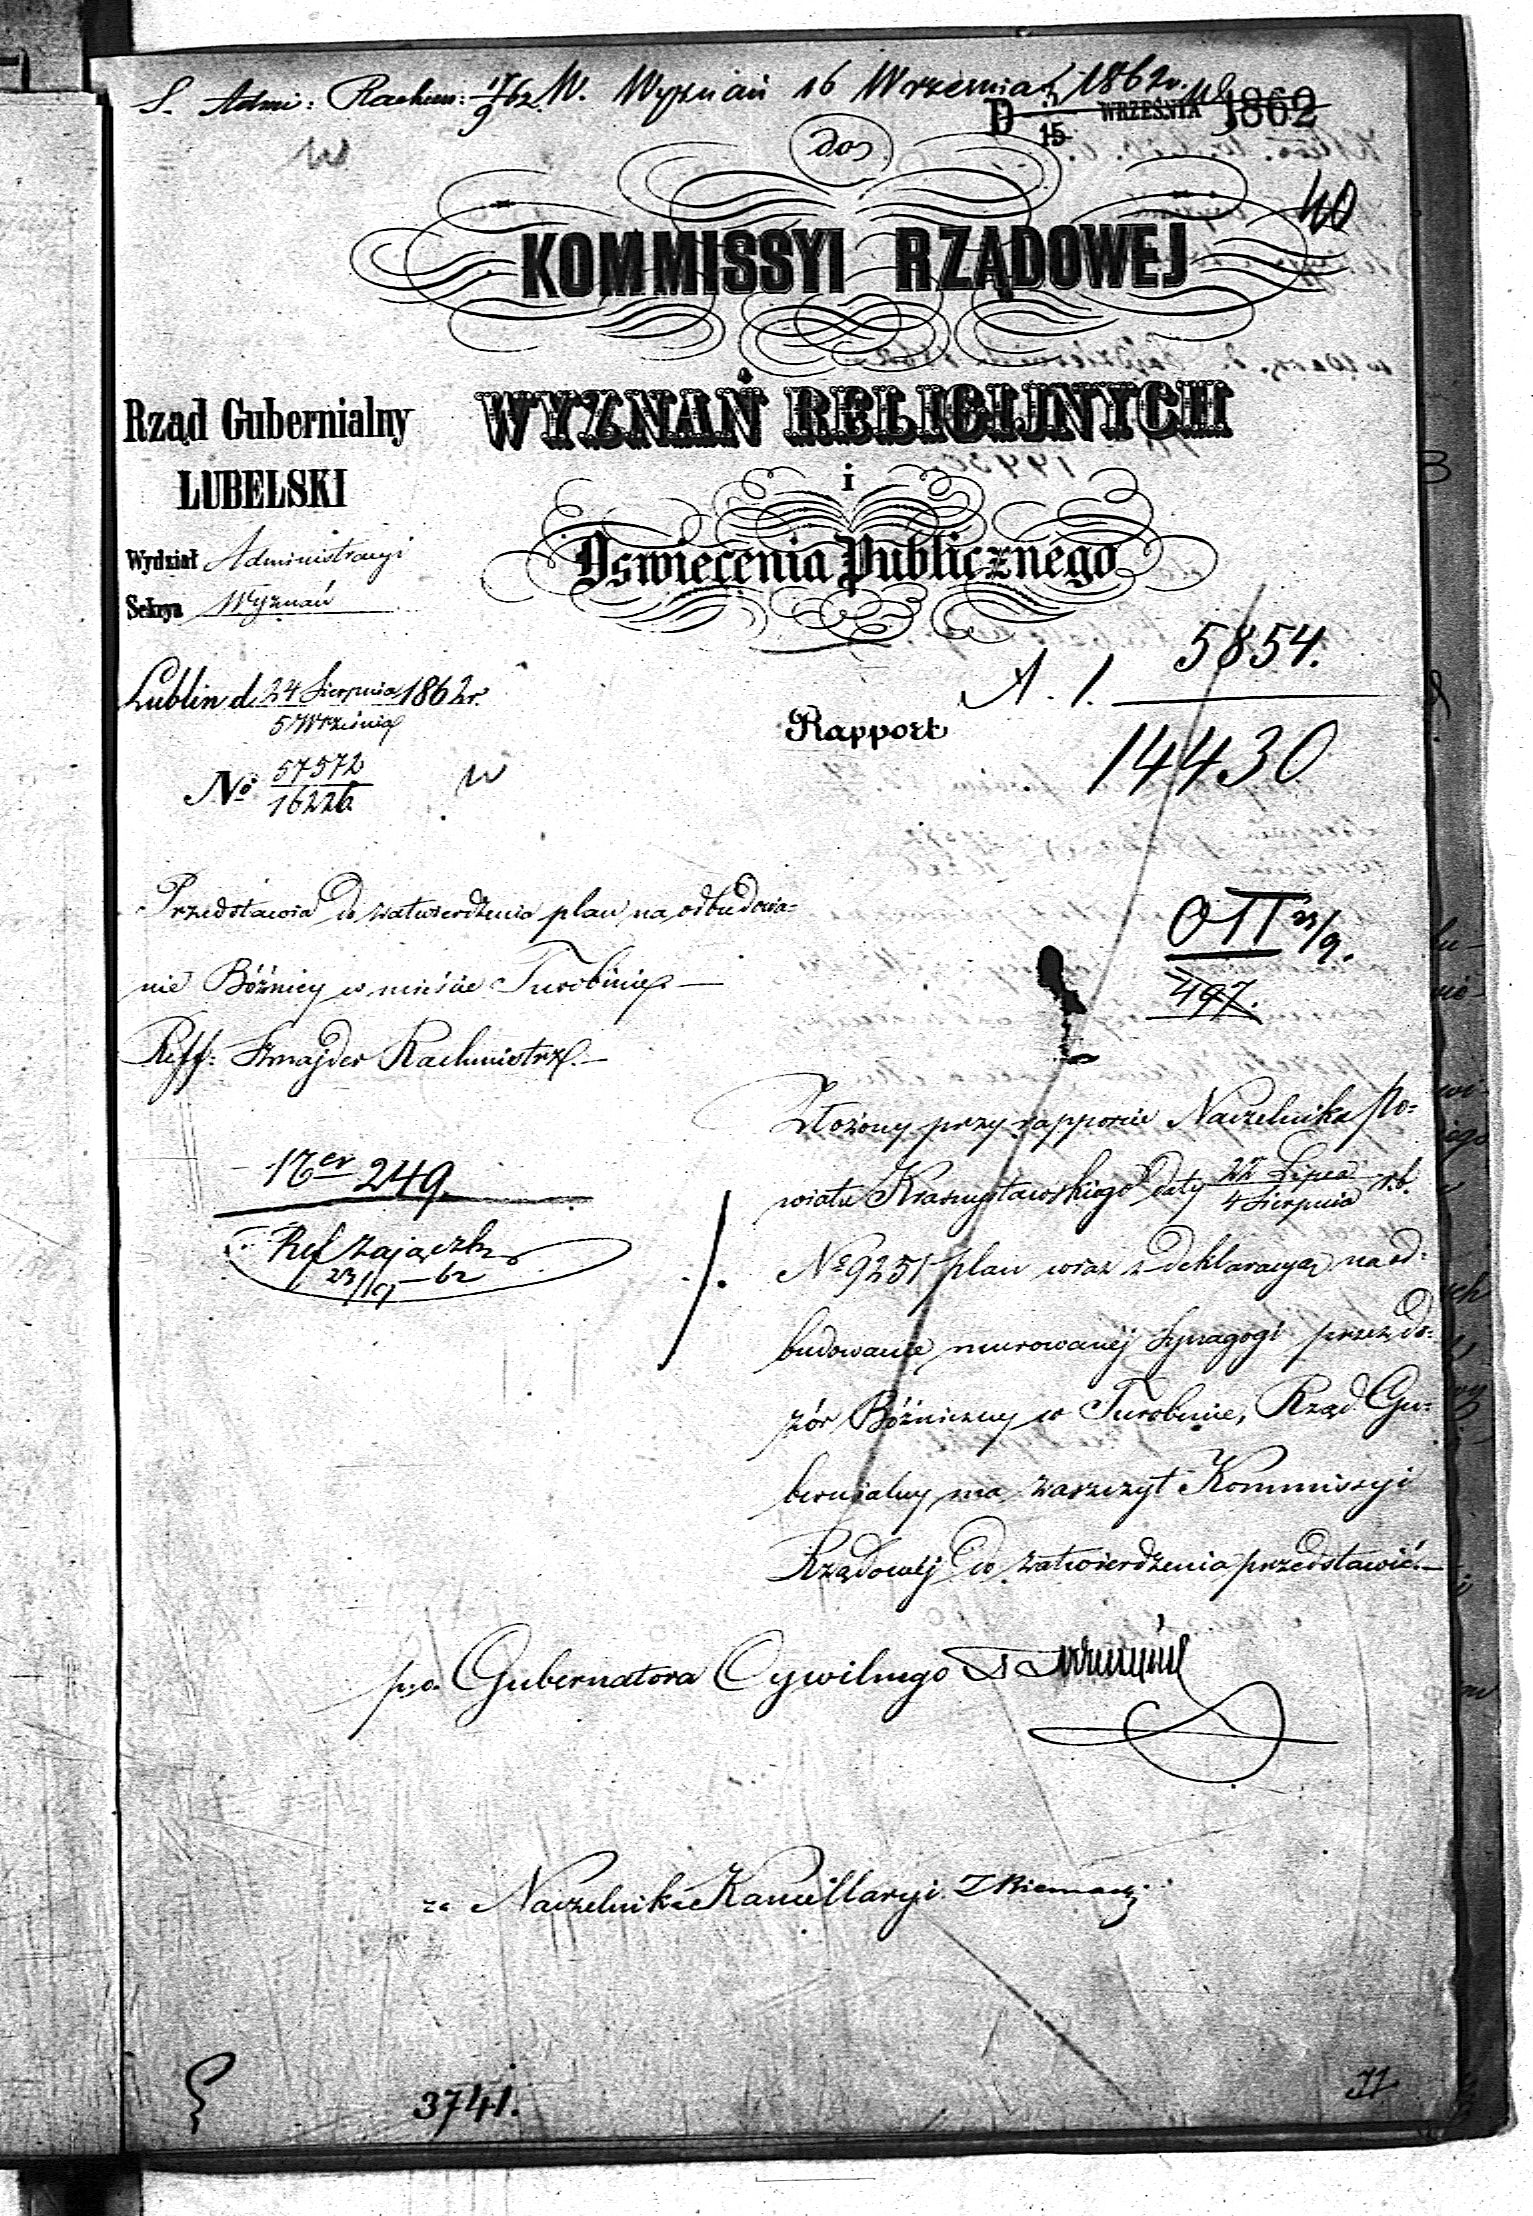 S. Admi: Rachun: 17/9 62. W. Wyznań 16 Września 1862 r.
D 3/15 WRZEŚNIA 1862
do
40
KOMMISSYI RZĄDOWEJ
WYZNAŃ RELIGIJNYCH
i
Oswiecenia Publicznego
Rząd Gubernialny
LUBELSKI
Wydział Administracyi
Sekcya Wyznań
Lublin d. 24 Sierpnia / 5 Września 1862 r.
№ 57572 / 16226
Rapport
A. 1. 5854. / 14430
Przedstawia do zatwierdzenia plan na odbudowa=
nie Bóźnicy w mieście Turobinie.—
Reff: Szmajder Rachmistrz.—
OTT 23/9.
497.
17er 249.
Ref Zajączk
23/9 – 62
Złożony przy rapporcie Naczelnika Po=
wiatu Krasnystawskiego z daty 22 Lipca / 4 Sierpnia r.b.
№ 9251 plan wraz z deklaracyą na od=
budowanie murowanéj Synagogi przez do=
zór Bóźniczny w Turobinie, Rząd Gu=
bernialny ma zaszczyt Kommissyi
Rządowéj do zatwierdzenia przedstawić.—
p.o. Gubernatora Cywilnego
za Naczelnika Kancellaryi
3741.